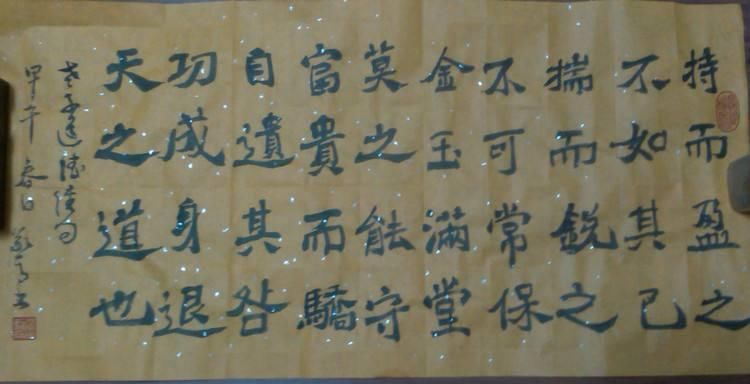 持而盈之
不如其已
揣而銳之
不可常保
金玉滿堂
莫之能守
富貴而驕
自遺其咎
功成身退
天之道也
老子道德經句
甲午春日